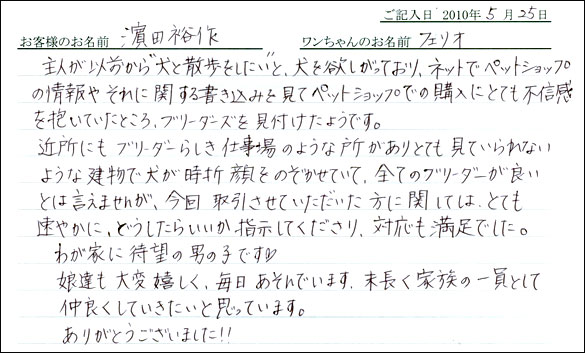 ご記入日 2010年5月25日
お客様のお名前 濱田裕作 ワンちゃんのお名前 フェリオ
主人が以前から"犬と散歩をしたい"と、犬を欲しがっており、ネットでペットショップ
の情報やそれに関する書き込みを見てペットショップでの購入にとても不信感
を抱いていたところ、ブリーダーズを見付けたようです。
近所にもブリーダーらしき仕事場のような所がありとても見ていられない
ような建物で犬が時折顔をのぞかせていて、全てのブリーダーが良い
とは言えませんが、今回取引させていただいた方に関しては、とても
速やかに、どうしたらいいか指示してくださり、対応も満足でした。
わが家に待望の男の子です♡
娘達も大変嬉しく、毎日あそんでいます。末長く家族の一員として
仲良くしていきたいと思っています。
ありがとうございました!!